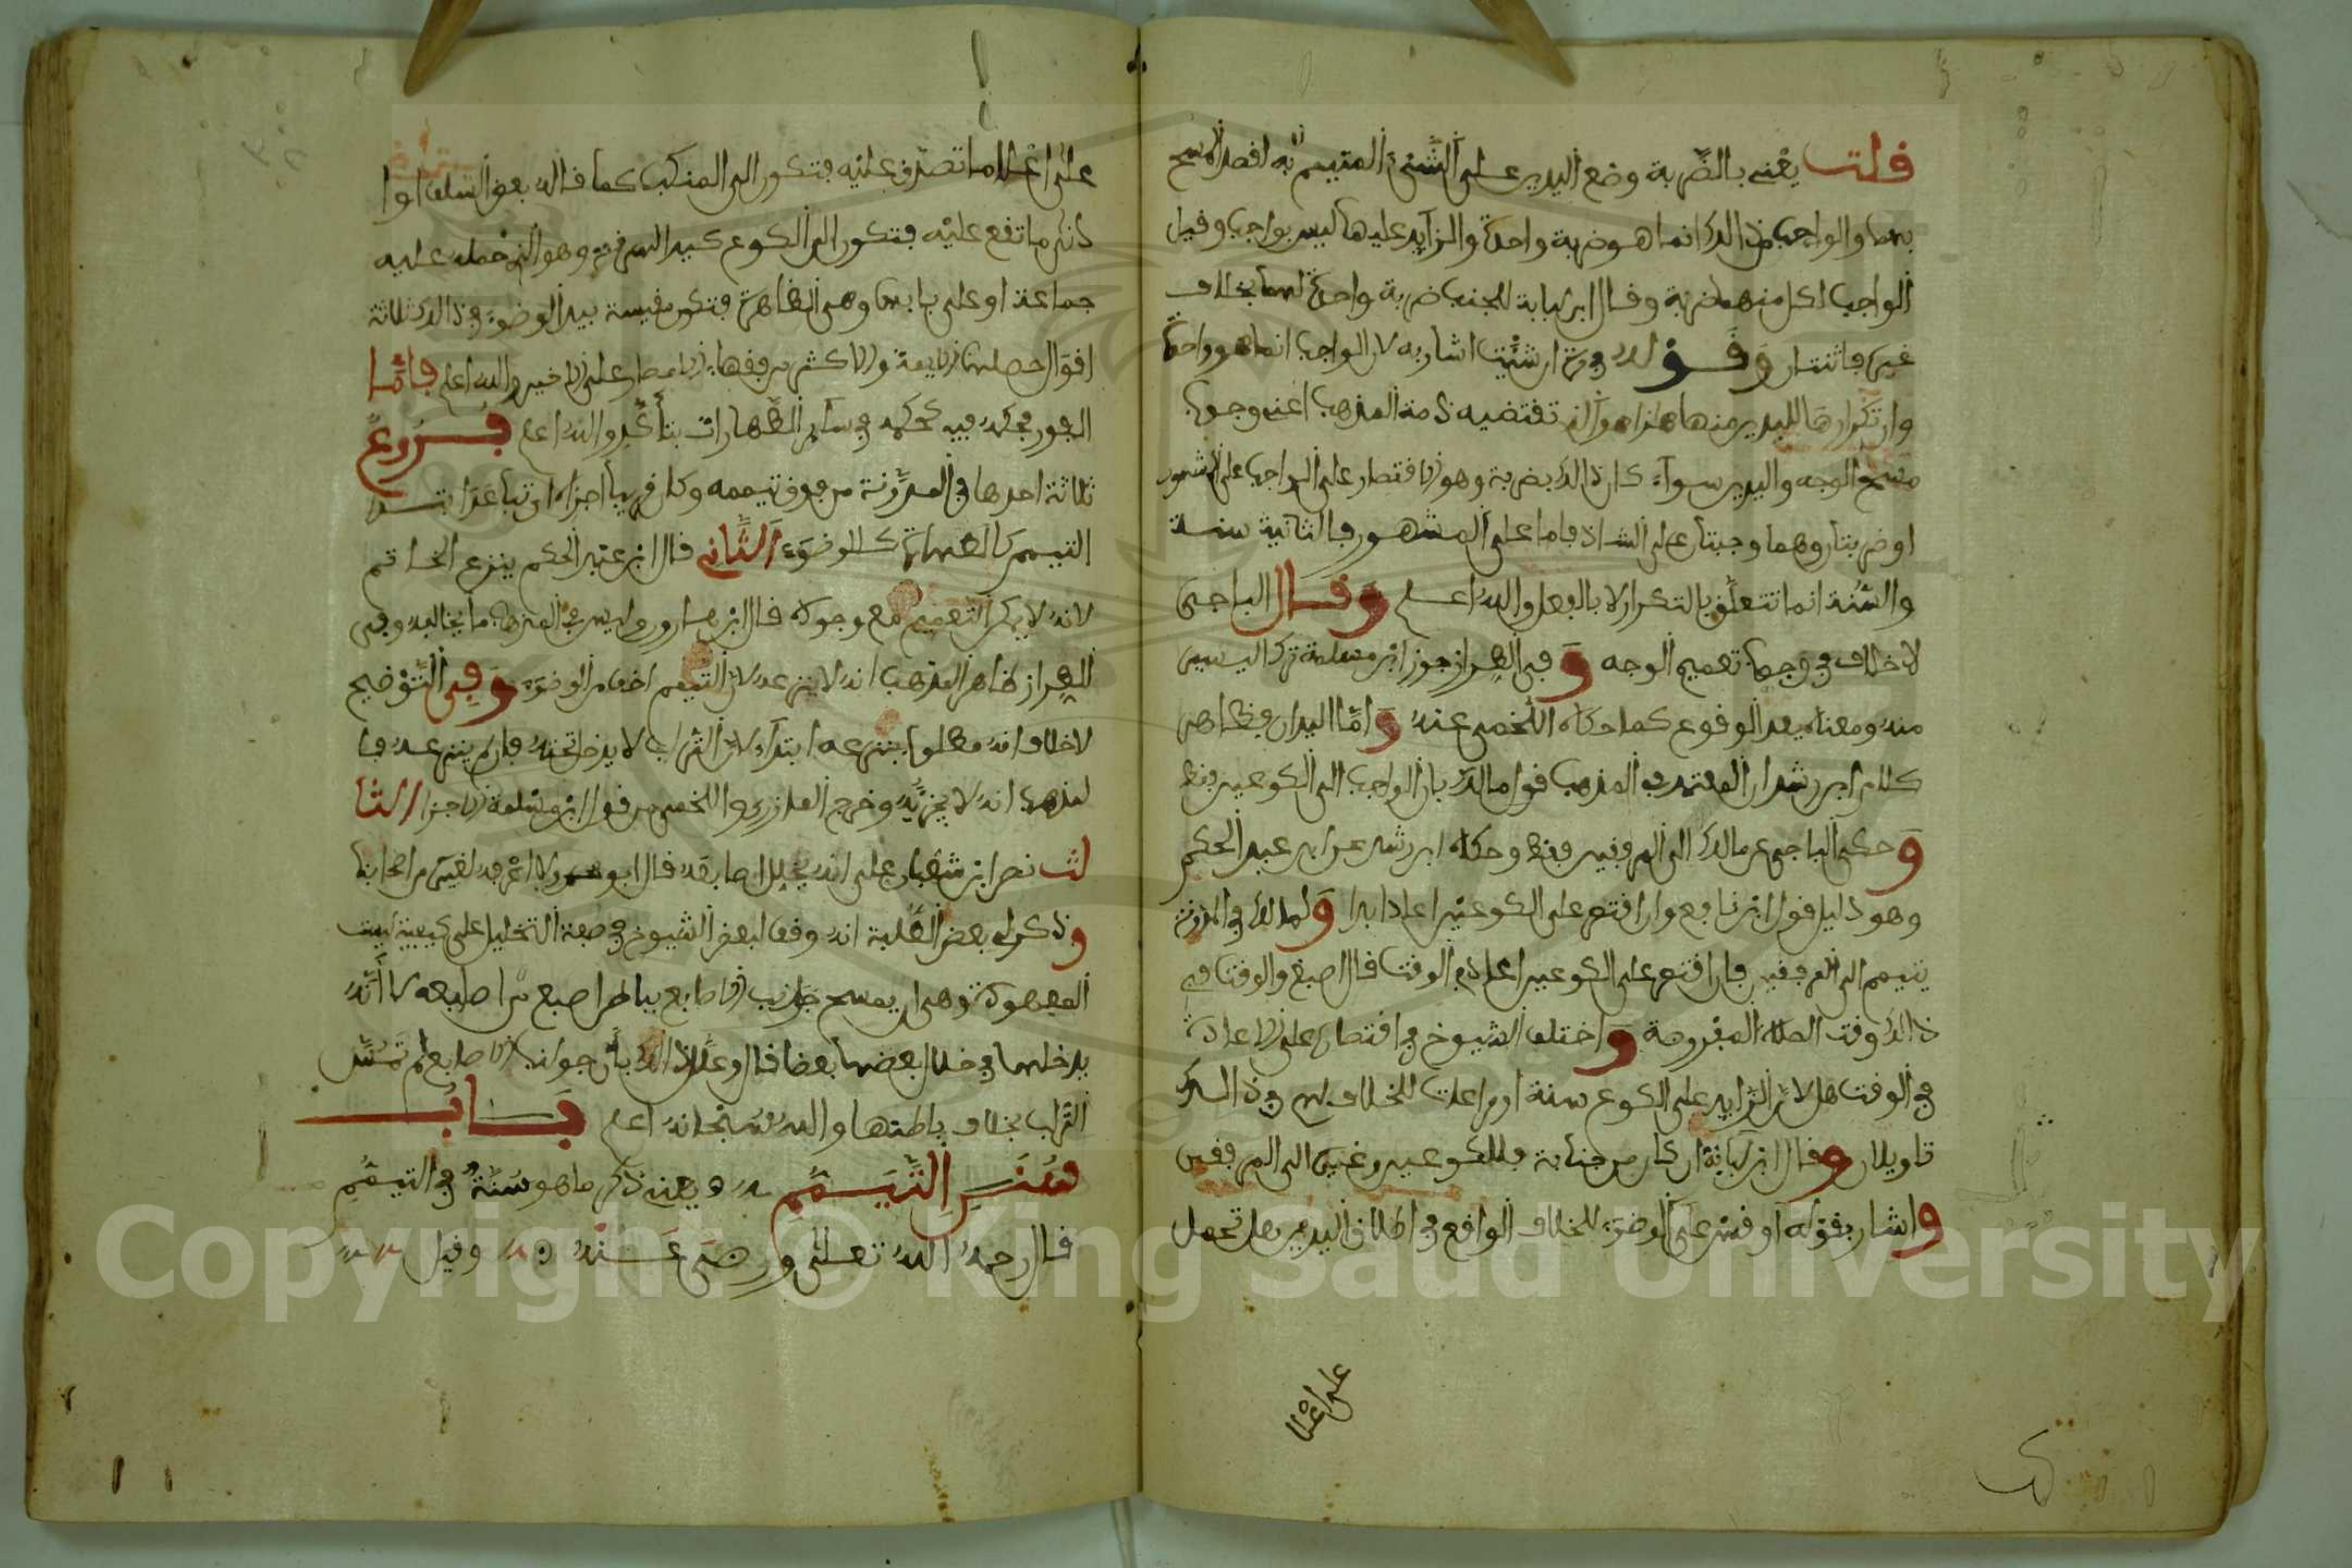 قلت يعني بالضربة وضع اليدين على الشيء المتيمم به لقصد المسح
بهما والواجب من ذالك انما هو ضربة واحدة والزايد عليها ليس بواجب وقيل
الواجب لكل منهما ضربة وقال ابن لبابة للجنب ضربة واحدة لهما بخلاف
غيره فاثنتان وقوله مرة ان شئت اشار به لان الواجب انما هو واحدة
وان تكرارها لليدين منها هذا هو الذي تقتضيه ذمة المذهب اعني وجوب
مسح الوجه واليدين سواء كان ذالك بضربة وهو الاقتصار على الواجب على المشهور
او ضربتان وهما وجبتان على الشاذ فاما على المشهور فالثانية سنة
والسنة انما تتعلق بالتكرار لا بالفعل والله اعلم وقال الباجي
لا خلاف في وجوب تعميم الوجه وفي الطراز جوز ابن مسلمة ترك اليسير
منه ومعناه بعد الوقوع كما حكاه اللخمي عنه واما اليدان فظاهر
كلام ابن رشد ان المعتمد في المذهب قول مالك بان الواجب الى الكوعين فقط
وحكى الباجي عن مالك الى المرفقين فقط وحكاه ابن رشد عن ابن عبد الحكم
وهو دليل قول ابن نافع وان اقتصر على الكوعين اعاد ابدا ولمالك في المدونة
يتيمم الى المرفقين فان اقتصر على الكوعين اعاد في الوقت قال اصبغ والوقت في
ذالك وقت الصلاة المفروضة واختلف الشيوخ في اقتصاره على الاعادة
في الوقت هل لان الزايد على الكوع سنة او مراعات للخلاف لهم في ذالك
تاويلان وقال ابن لبابة ان كان من جنابة فللكوعين وغيره الى المرفقين
واشار بقوله او قس على الوضوء للخلاف الواقع في اطلاق اليدين هل تحمل
على اعلا
على اعلا ما تصدق عليه فتكون الى المنكب كما قاله بعض السلف او ا
دنى ما تقع عليه فتكون الى الكوع كيد السرقة وهو الذي حمله عليه
جماعة او على بابها وهي الظاهرة فتكون مقيسة بيد الوضوء وفي ذالك ثلاثة
اقوال والله اعلم فائما
الفور فحكمه فيه كحكمه في سائر الطهارات بتأكد والله اعلم فروع
ثلاثة احدها في المدونة من فرق تيممه وكان قريبا اجزاه وان تباعد ابتدا
التيمم كالطهارة كالوضوء الثاني قال ابن عبد الحكم ينزع الخاتم
لانه لا يمكن التعميم مع وجوده قال ابن هارون وليس في المذهب ما يخالفه وفي
الطراز ظاهر المذهب انه لا ينزعه لان التيمم اخف من الوضوء وفي التوضيح
لا خلاف انه مطلوب بنزعه ابتداء لان التراب لا يدخل تحته فان لم ينزعه فا
لمذهب انه لا يجزيه وخرج المازري واللخمي من قول ابن مسلمة الاجزا الثا
لث نص ابن شعبان على انه يخلل اصابعه قال ابو محمد ولا اعرفه لغيره من اصحابنا
وذكر لي بعض الطلبة انه وقف لبعض الشيوخ في صفة التخليل على كيفية ليست
المعهودة وهي ان يمسح جوانب الاصابع بباطن اصبع من اصابعه لا انه
يدخلها في خلال بعضها بعضا قال وعلل ذالك بان جوانب الاصابع لم تمس
التراب بخلاف باطنها والله سبحانه اعلم باب
سنن التيمم يعني ذكر ما هو سنة في التيمم
قال رحمه الله تعلى ورضي عنه وقيل